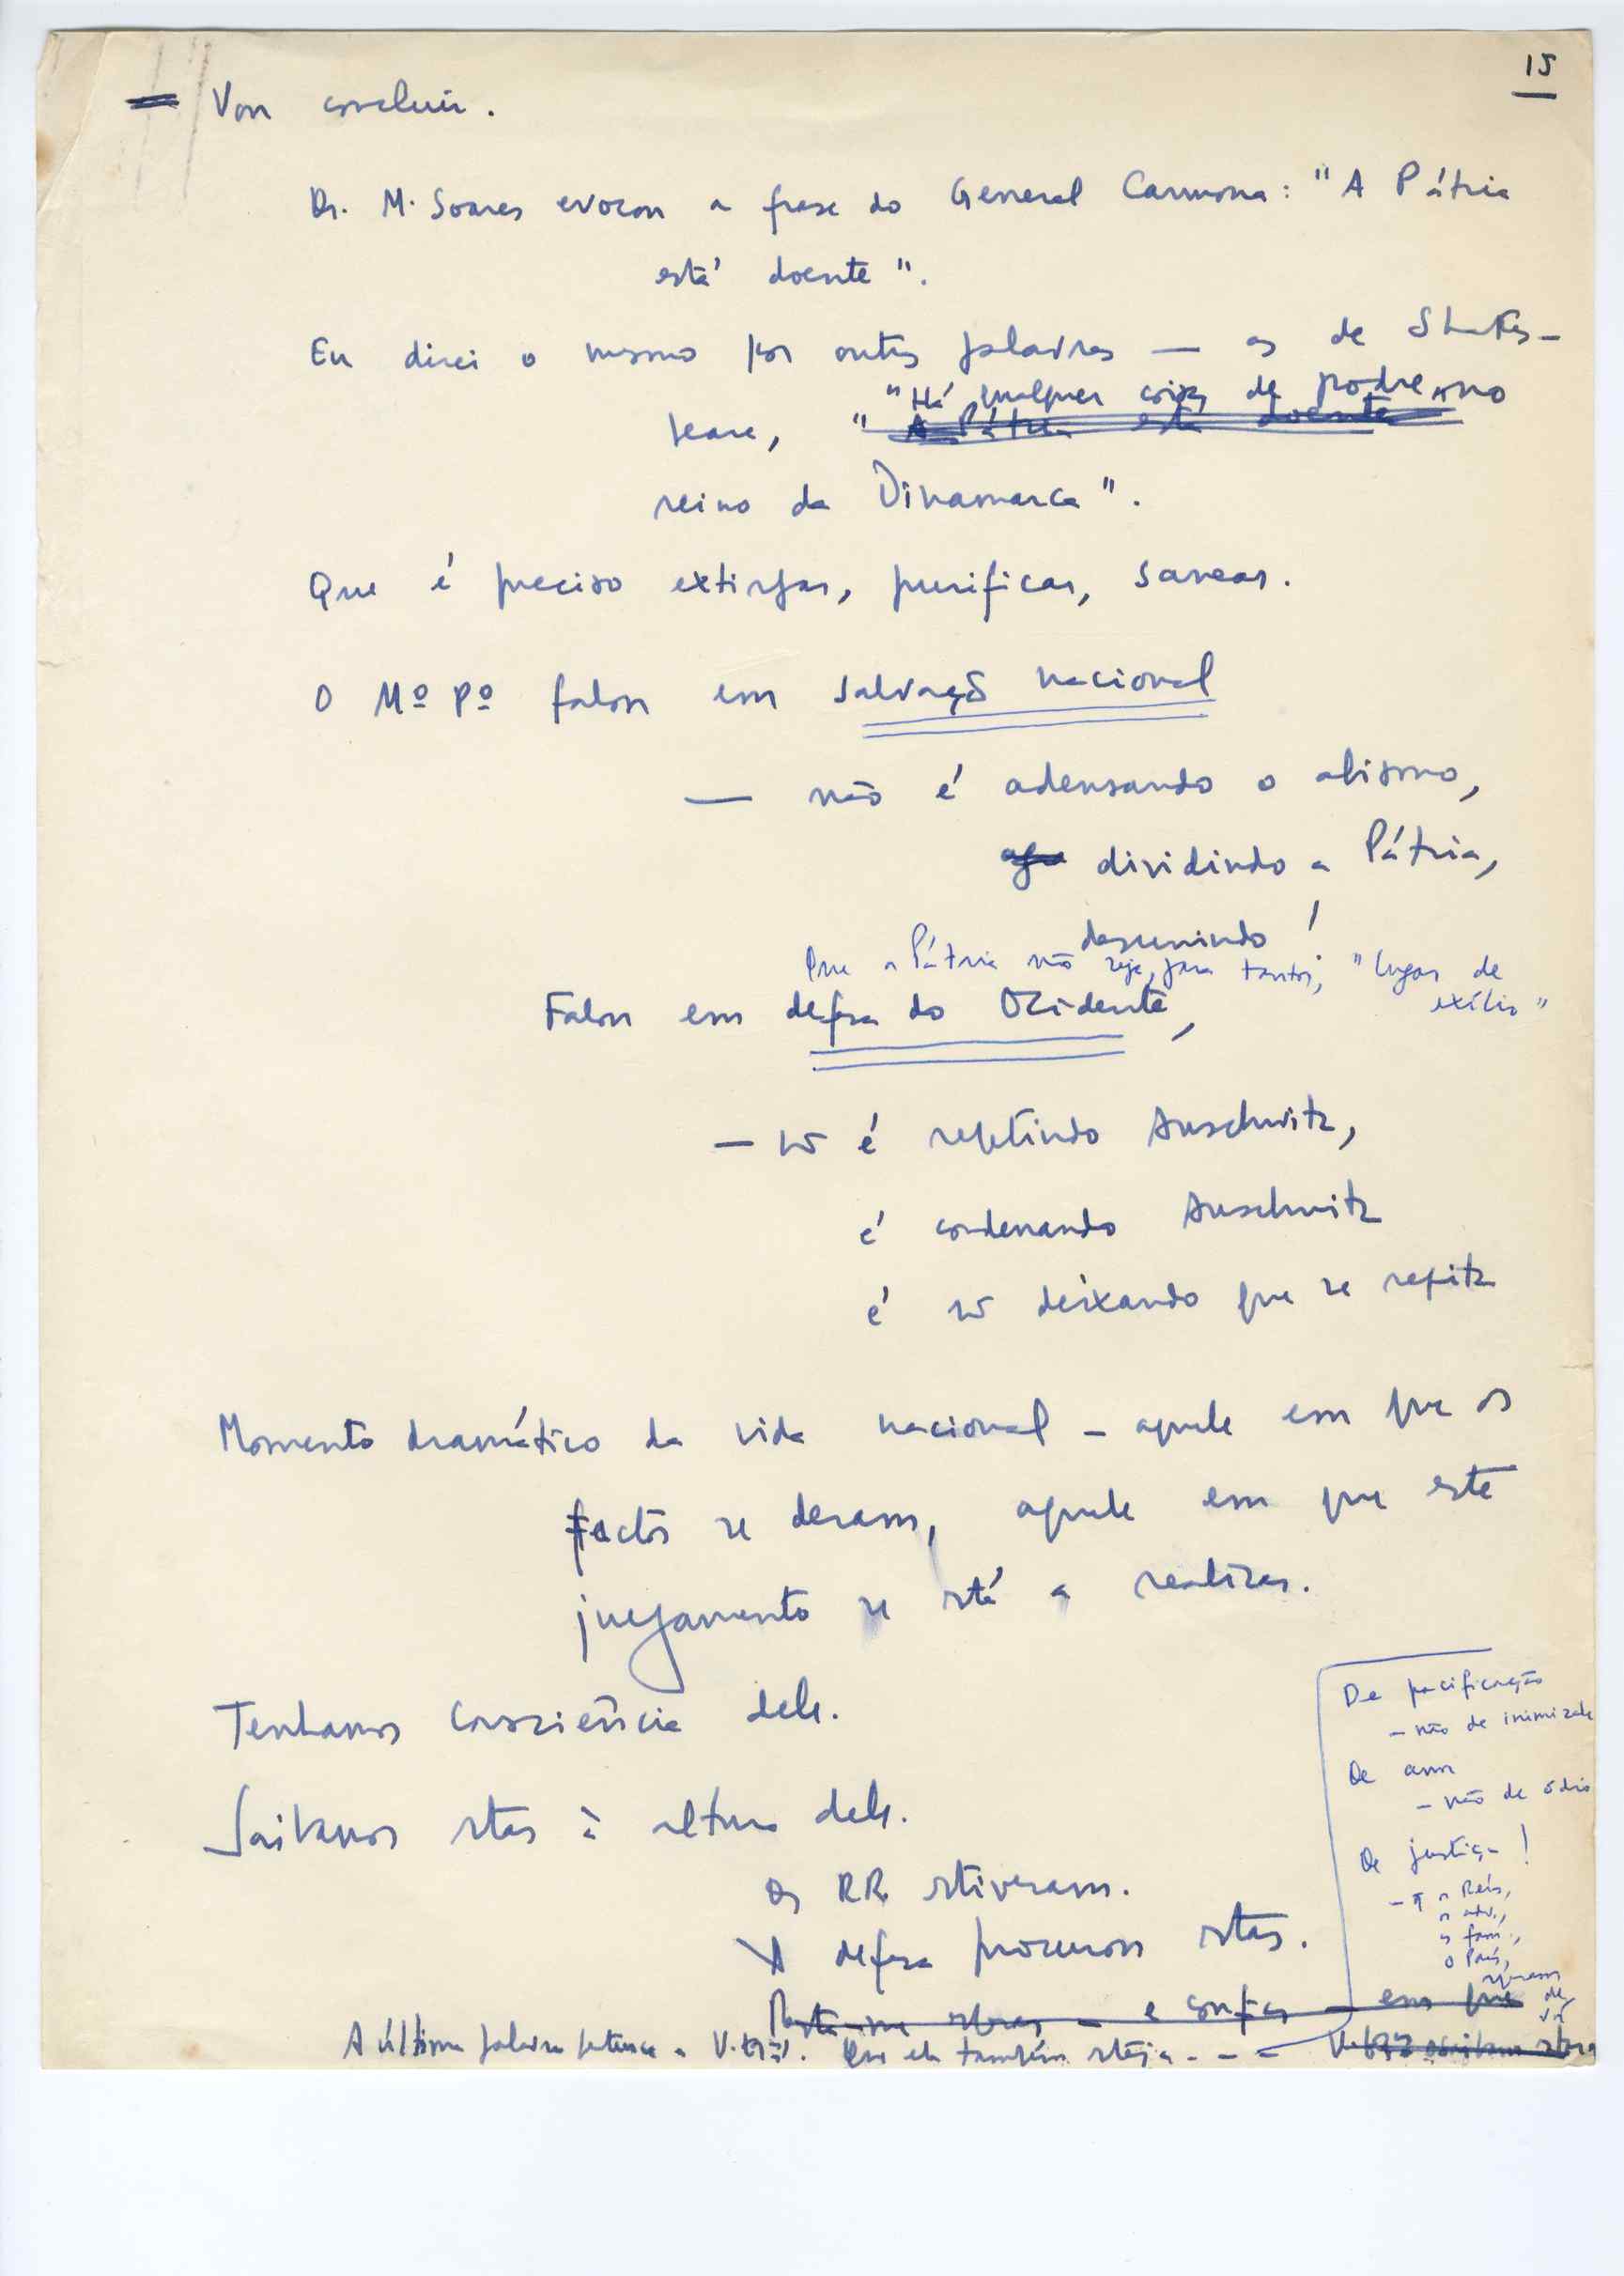 15
= Vou concluir.
Dr. M. Soares evocou a frase do General Carmona: "A Pátria
está doente".
Eu direi o mesmo por outras palavras — as de Shakes-
"Há qualquer coisa de podre no
peare, " A Pátria está doente
reino da Dinamarca".
Que é preciso extirpar, purificar, sanear.
O Mº Pº falou em salvação nacional
— não é adensando o abismo,
dividindo a Pátria,
desunindo!
Que a Pátria não seja, para tantos, "lugar de
exílio"
Falou em defesa do Ocidente,
— ñ é repetindo Auschwitz,
é condenando Auschwitz
é ñ deixando que se repita
Momento dramático da vida nacional – aquele em que os
factos se deram, aquele em que este
julgamento se está a realizar.
Tenhamos consciência dele.
Saibamos estar à altura dele.
Os RR. estiveram.
A defesa procurou estar.
De pacificação
– não de inimizade
De amor
– não de ódio
De justiça!
– q os Réus,
os adv.,
as fam.,
o País,
esperam
de
Vª
Resta-me esperar – e confiar – em que
A última palavra pertence a V. Que ela também esteja - - -